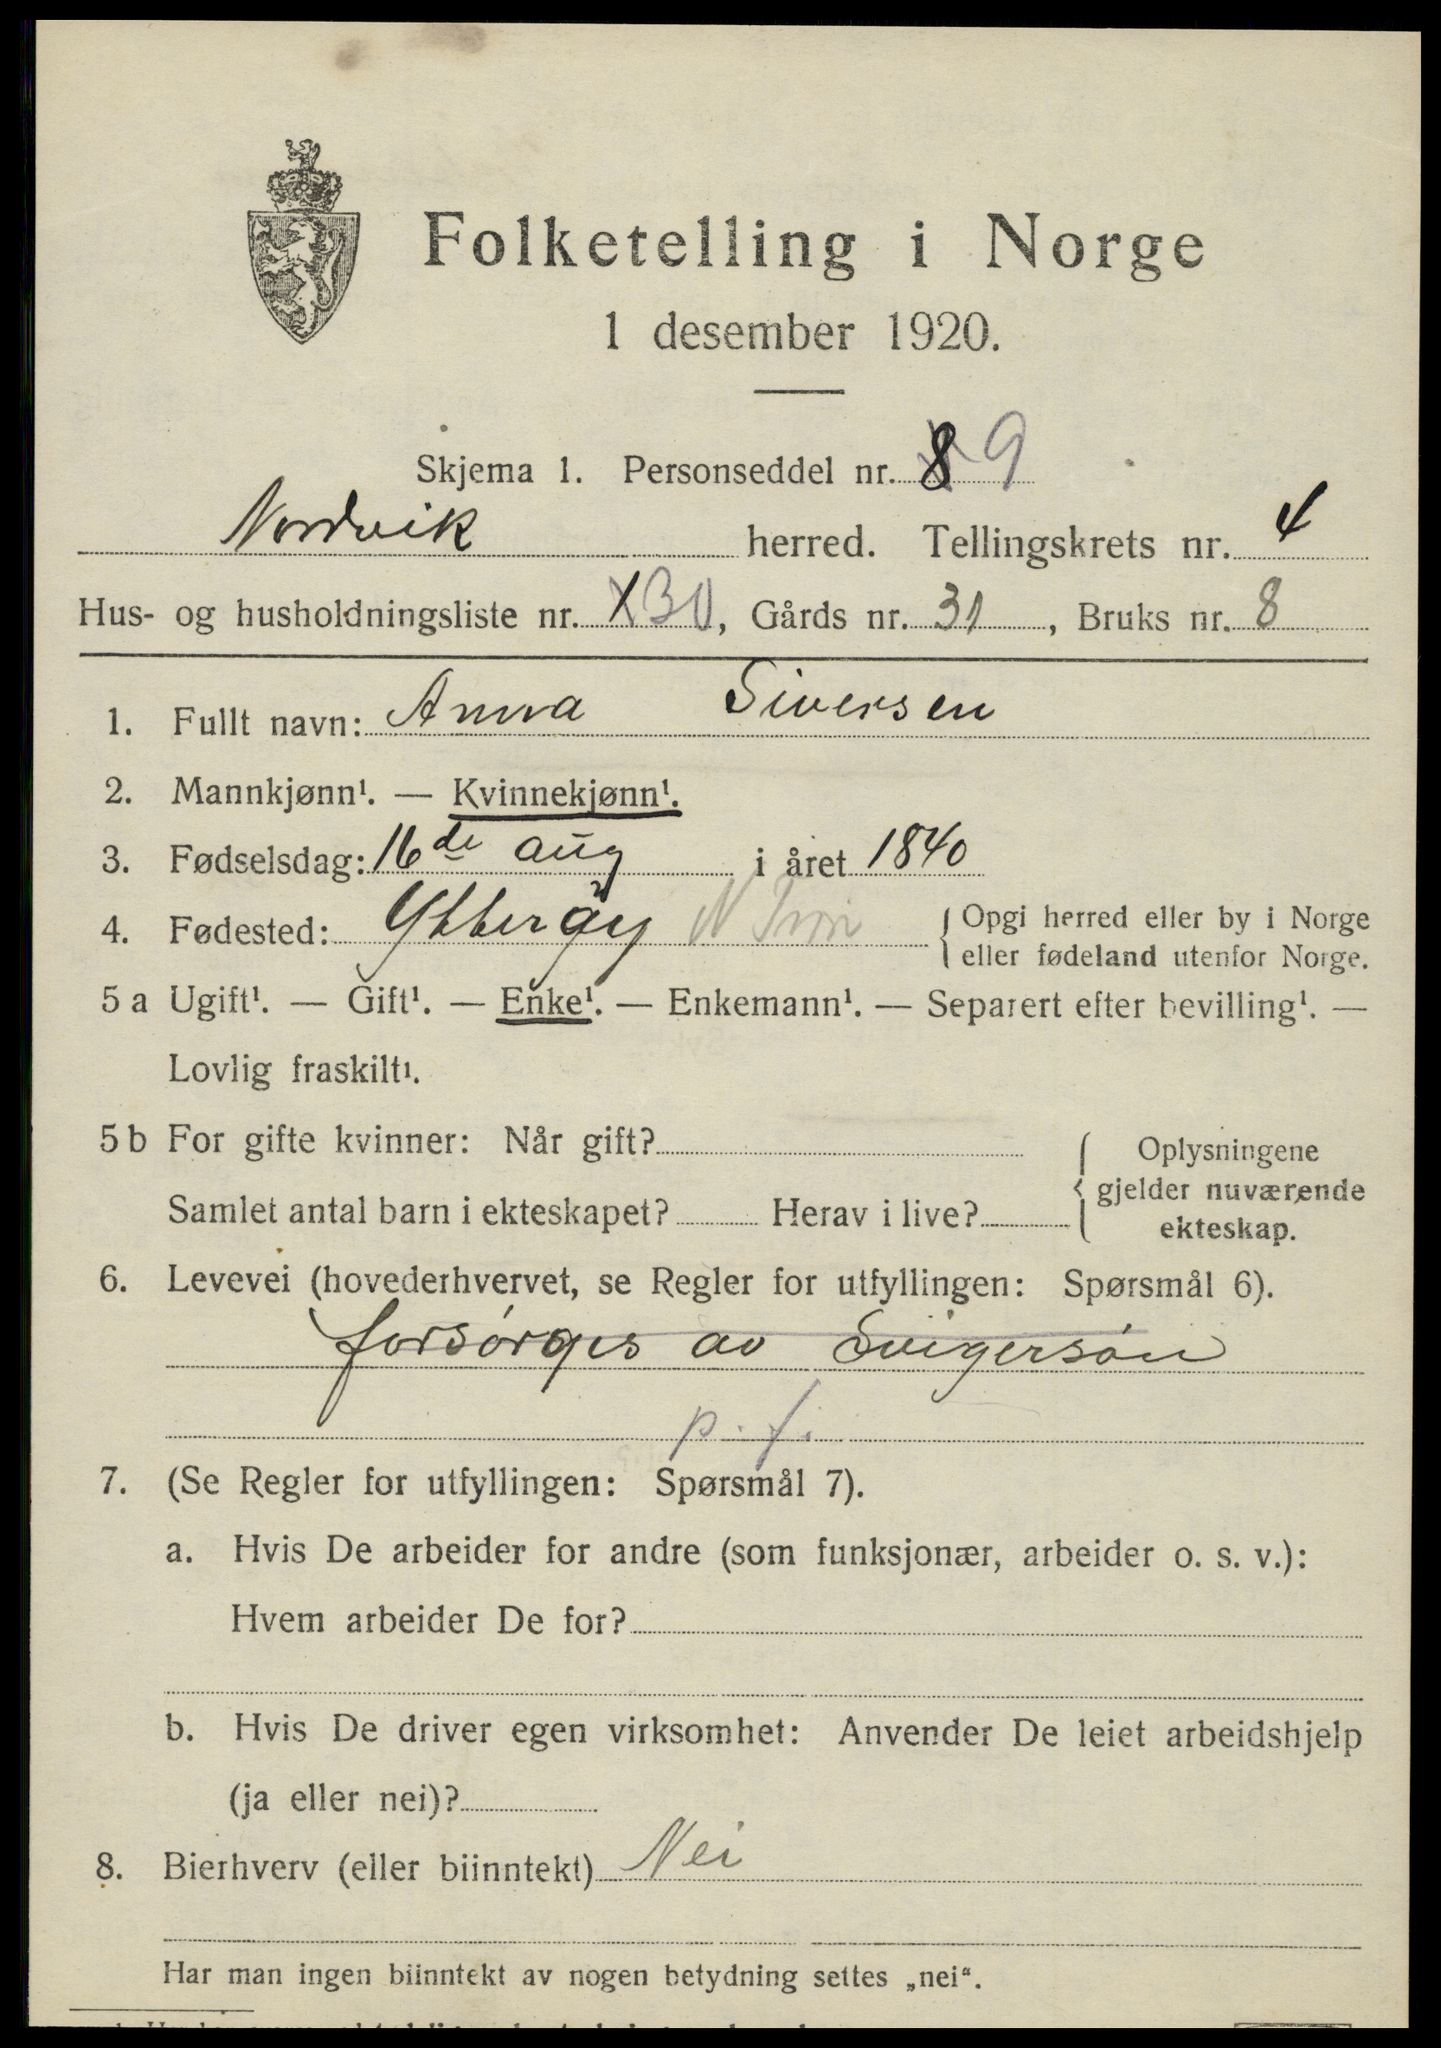 Folketelling i Norge
1 desember 1920.
Skjema 1. Personseddel nr. 8 9
Nordvik herred. Tellingskrets nr. 4
Hus- og husholdningsliste nr. 30, Gårds nr. 31, Bruks nr. 8
1. Fullt navn: Anna Siversen
2. Mannkjønn¹. — Kvinnekjønn¹.
3. Fødselsdag: 16de aug i året 1840
4. Fødested: Ytterøy N. { Opgi herred eller by i Norge
eller fødeland utenfor Norge.
5 a Ugift¹. — Gift¹. — Enke¹. — Enkemann¹. — Separert efter bevilling¹. —
Lovlig fraskilt¹.
5 b For gifte kvinner: Når gift?
Samlet antal barn i ekteskapet? Herav i live?
{ Oplysningene
gjelder nuværende
ekteskap.
6. Levevei (hovederhvervet, se Regler for utfyllingen: Spørsmål 6).
forsørges av Svigersøn
p. f.
7. (Se Regler for utfyllingen: Spørsmål 7).
a. Hvis De arbeider for andre (som funksjonær, arbeider o. s. v.):
Hvem arbeider De for?
b. Hvis De driver egen virksomhet: Anvender De leiet arbeidshjelp
(ja eller nei)?
8. Bierhverv (eller biinntekt) Nei
Har man ingen biinntekt av nogen betydning settes „nei“.